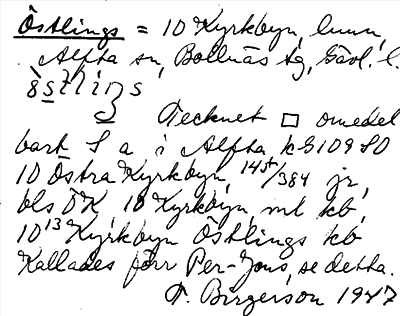 Östlings = 10 Kyrkbyn, hmn,
Alfta sn, Bollnäs tg, Gävl. l.
östlings
Tecknet □ omedel
bart S a i Alfta kG109 SO
10 Östra Kyrkbyn 14st/384 jr,
bls ÖK, 10 Kyrkbyn ml kb,
10¹³ Kyrkbyn Östlings kb
Kallades förr Per-Jons, se detta.
F. Birgerson 1947